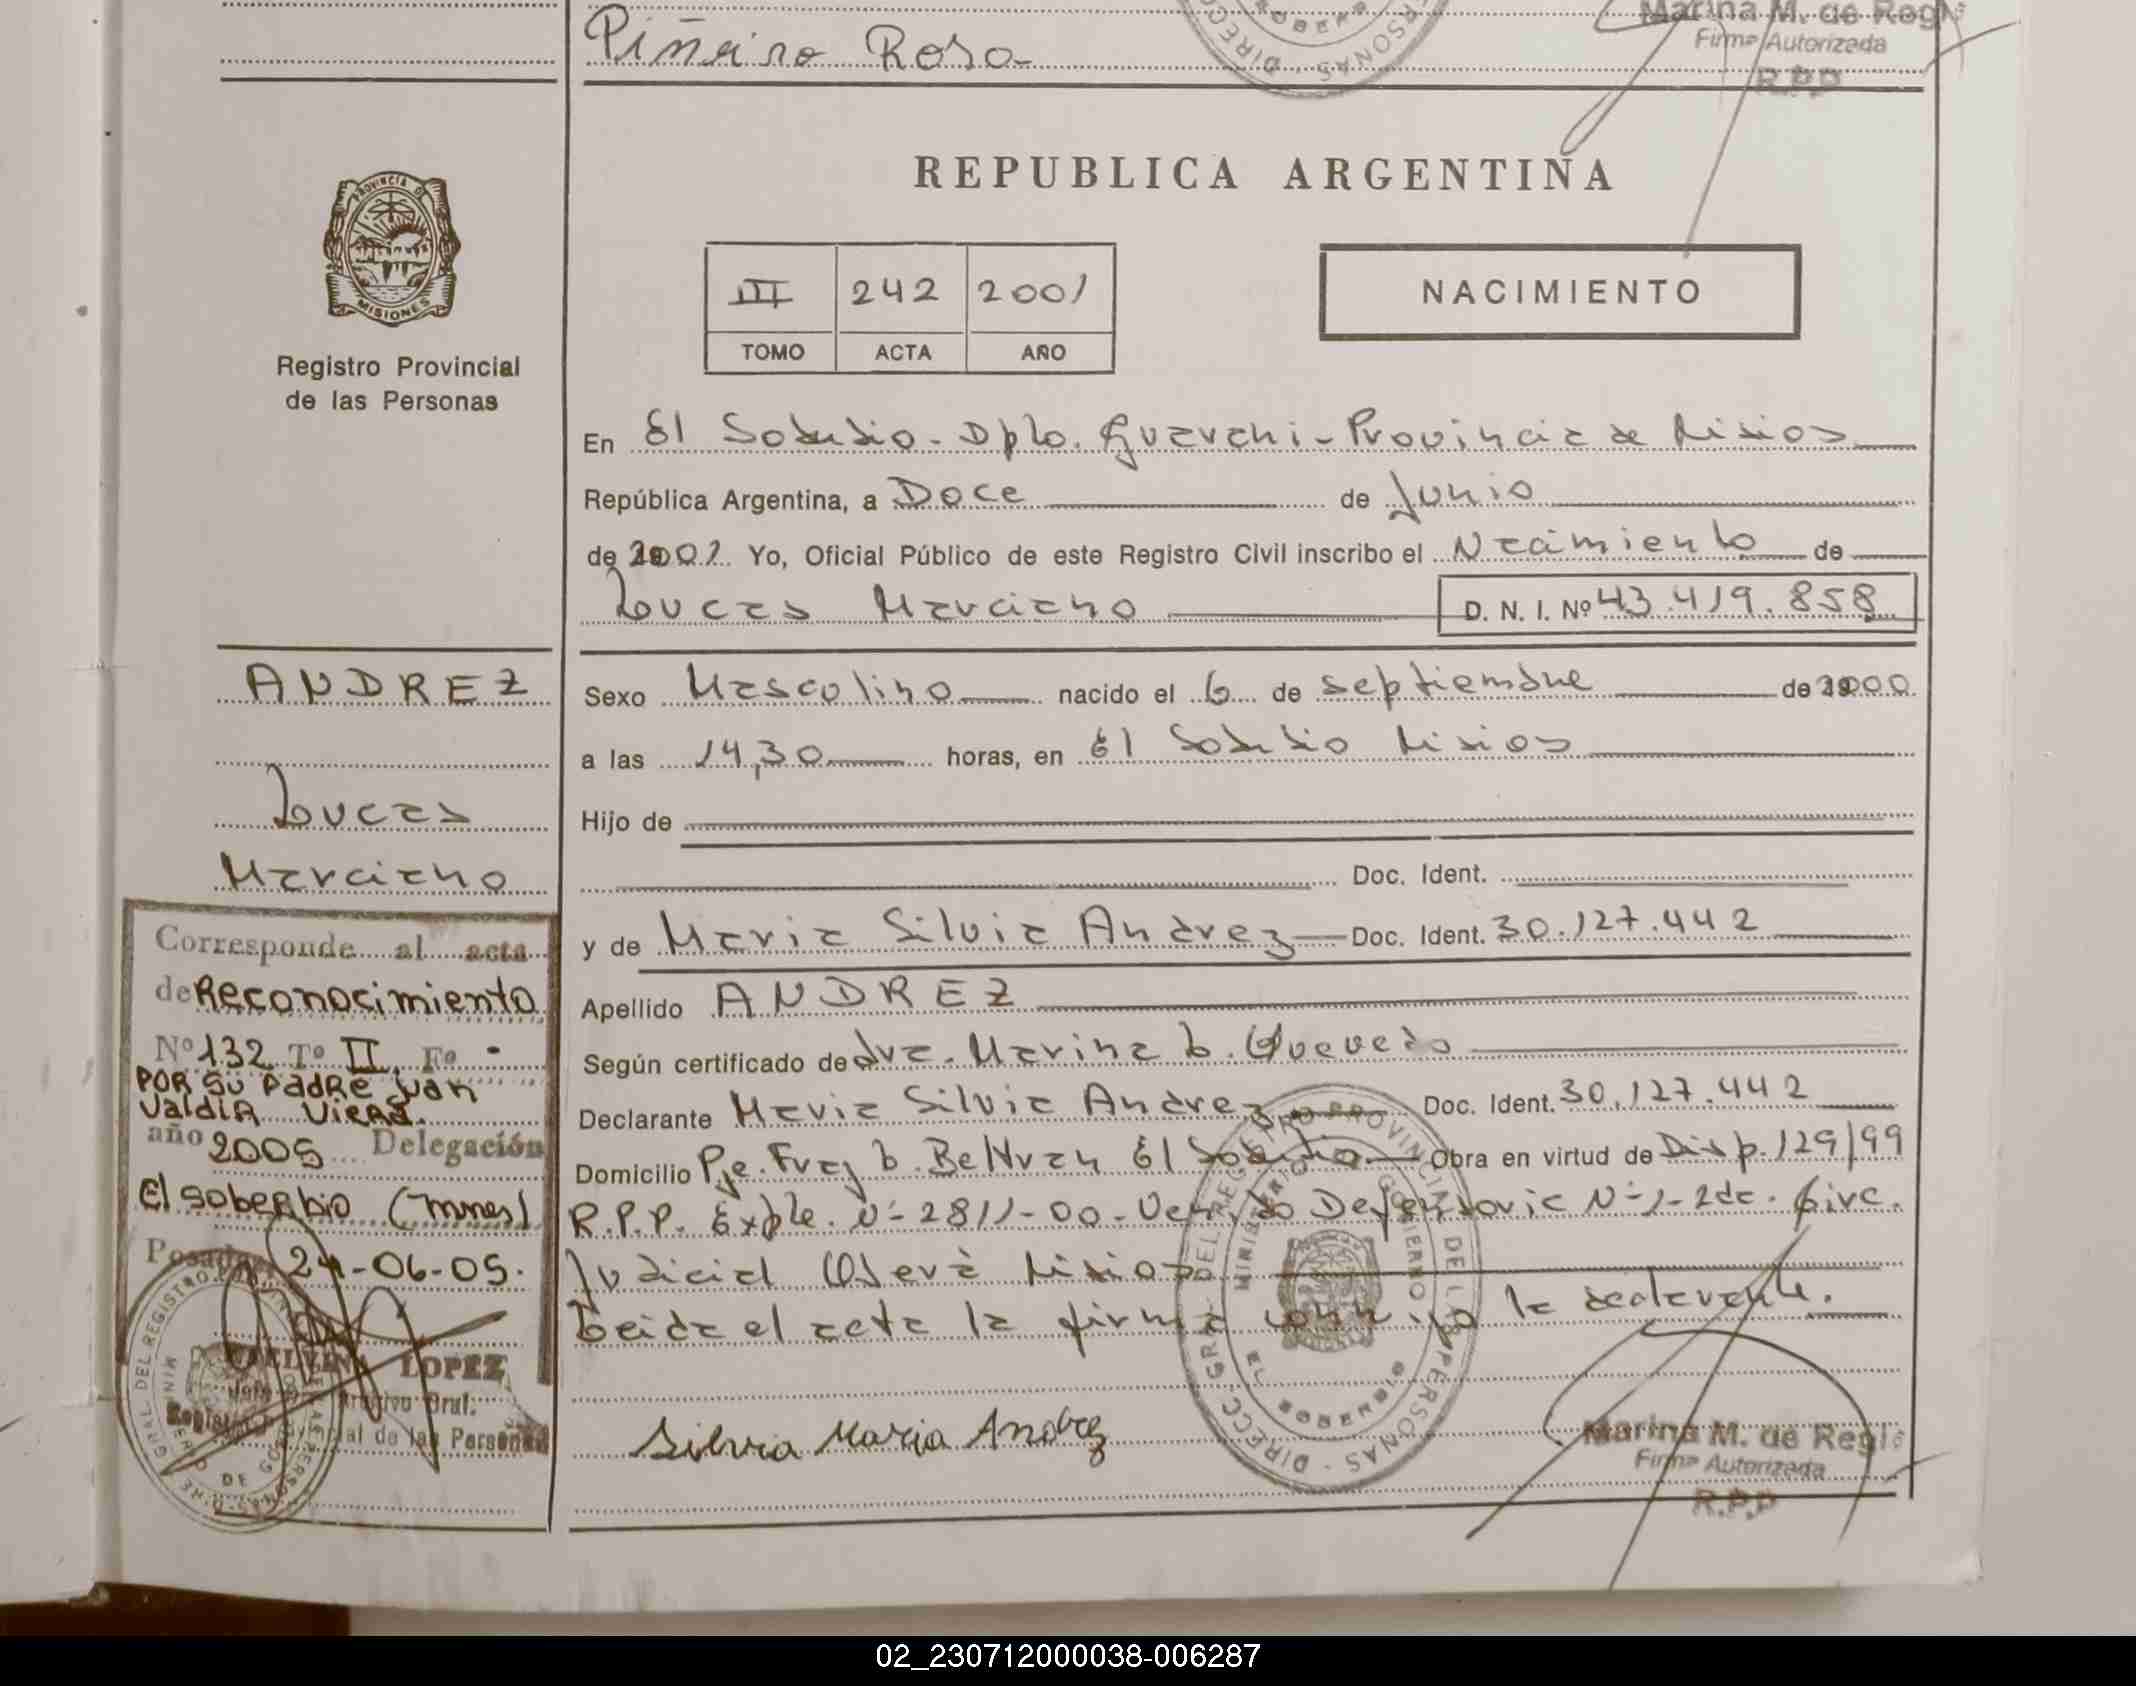 Piñeiro Rosa
Marina M. de Regi
Firma Autorizada
R.P.P
REPUBLICA ARGENTINA
PROVINCIA D
MISIONES
Registro Provincial
de las Personas
III 242 2001
TOMO ACTA AÑO
NACIMIENTO
En El Soberbio - Dpto. Guarani - Provincia de Misiones
República Argentina, a Doce de Junio
de 2001. Yo, Oficial Público de este Registro Civil inscribo el Nacimiento de
Lucas Marciano D. N. I. Nº 43.419.858
ANDREZ
Lucas
Marciano
Sexo Masculino nacido el 6 de septiembre de 2000
a las 14,30 horas, en El Soberbio Misiones
Hijo de
Doc. Ident.
y de Maria Silvia Andrez Doc. Ident. 30.127.442
Apellido ANDREZ
Según certificado de dra. Marina b. Quevedo
Declarante Maria Silvia Andrez Doc. Ident. 30.127.442
Domicilio Pje. Fray b. Beltran El Soberbio Obra en virtud de Disp. 129/99
R.P.P. Expte. Nº 2811-00- Defensoria Nº 1- 2da. Circ.
Judicial Oberá Misiones
Leida el acta la firma conmigo la declarante.
Silvia Maria Andrez
Marina M. de Regi
Firma Autorizada
R.P.P
DIRECC GRAL DEL REGISTRO PROVINCIAL DE LAS PERSONAS
MINISTERIO GOBIERNO
EL SOBERBIO
Corresponde al acta
de Reconocimiento
Nº 132 Tº II Fº -
POR SU PADRE Juan
Valdir Viera.
año 2005 Delegación
El soberbio (mnes)
Posadas, 24-06-05.
LOPEZ
Jefe Archivo Gral.
Registro Provincial de las Personas
02_230712000038-006287